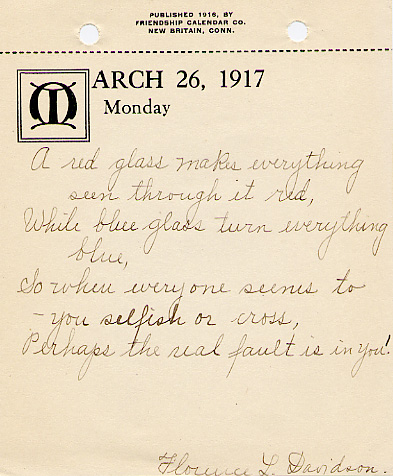 PUBLISHED 1916, BY
FRIENDSHIP CALENDAR CO.
NEW BRITAIN, CONN.
MARCH 26, 1917
Monday
A red glass makes everything
seen through it red,
While blue glass turn everything
blue,
So when everyone seems to
- you selfish or cross,
Perhaps the real fault is in you!
Florence L. Davidson.